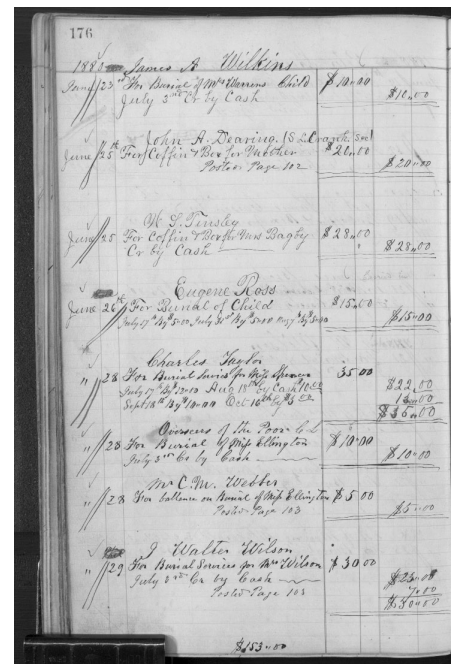 176
1880 James A Wilkins
June 23rd For Burial of Mrs Warrens Child $10.00
July 3rd Cr by Cash $10.00
John A. Dearing (S L Crank Sec)
June 25th For Coffin & Box for Mother $20.00
Posted Page 102 $20.00
W. L. Tinsley
June 25 For Coffin & Box for Mrs Bagby $28.00
Cr by Cash $28.00
Eugene Ross
June 26th For Burial of Child $15.00
July 17 By $5.00 July 31st By $5.00 Aug 7 By $5.00 $15.00
Charles Taylor
" 28 For Burial Servics for Wife Spencer 35.00
July 17th By $12.00 Aug 18th by Cash $10.00 $22.00
Sept 18th By $10.00 Oct 16th by $3.00 13.00
$35.00
Overseers of the Poor
" 28 For Burial of Miss Ellington $10.00
July 3rd Cr by Cash $10.00
Mr C. M. Webber
" 28 For ballence on Burial of Miss Ellington $5.00
Posted Page 103 $5.00
J Walter Wilson
" 29 For Burial Services for Mrs Wilson $30.00
July 3rd Cr by Cash $23.00
Posted Page 103 7.00
$30.00
$153.00